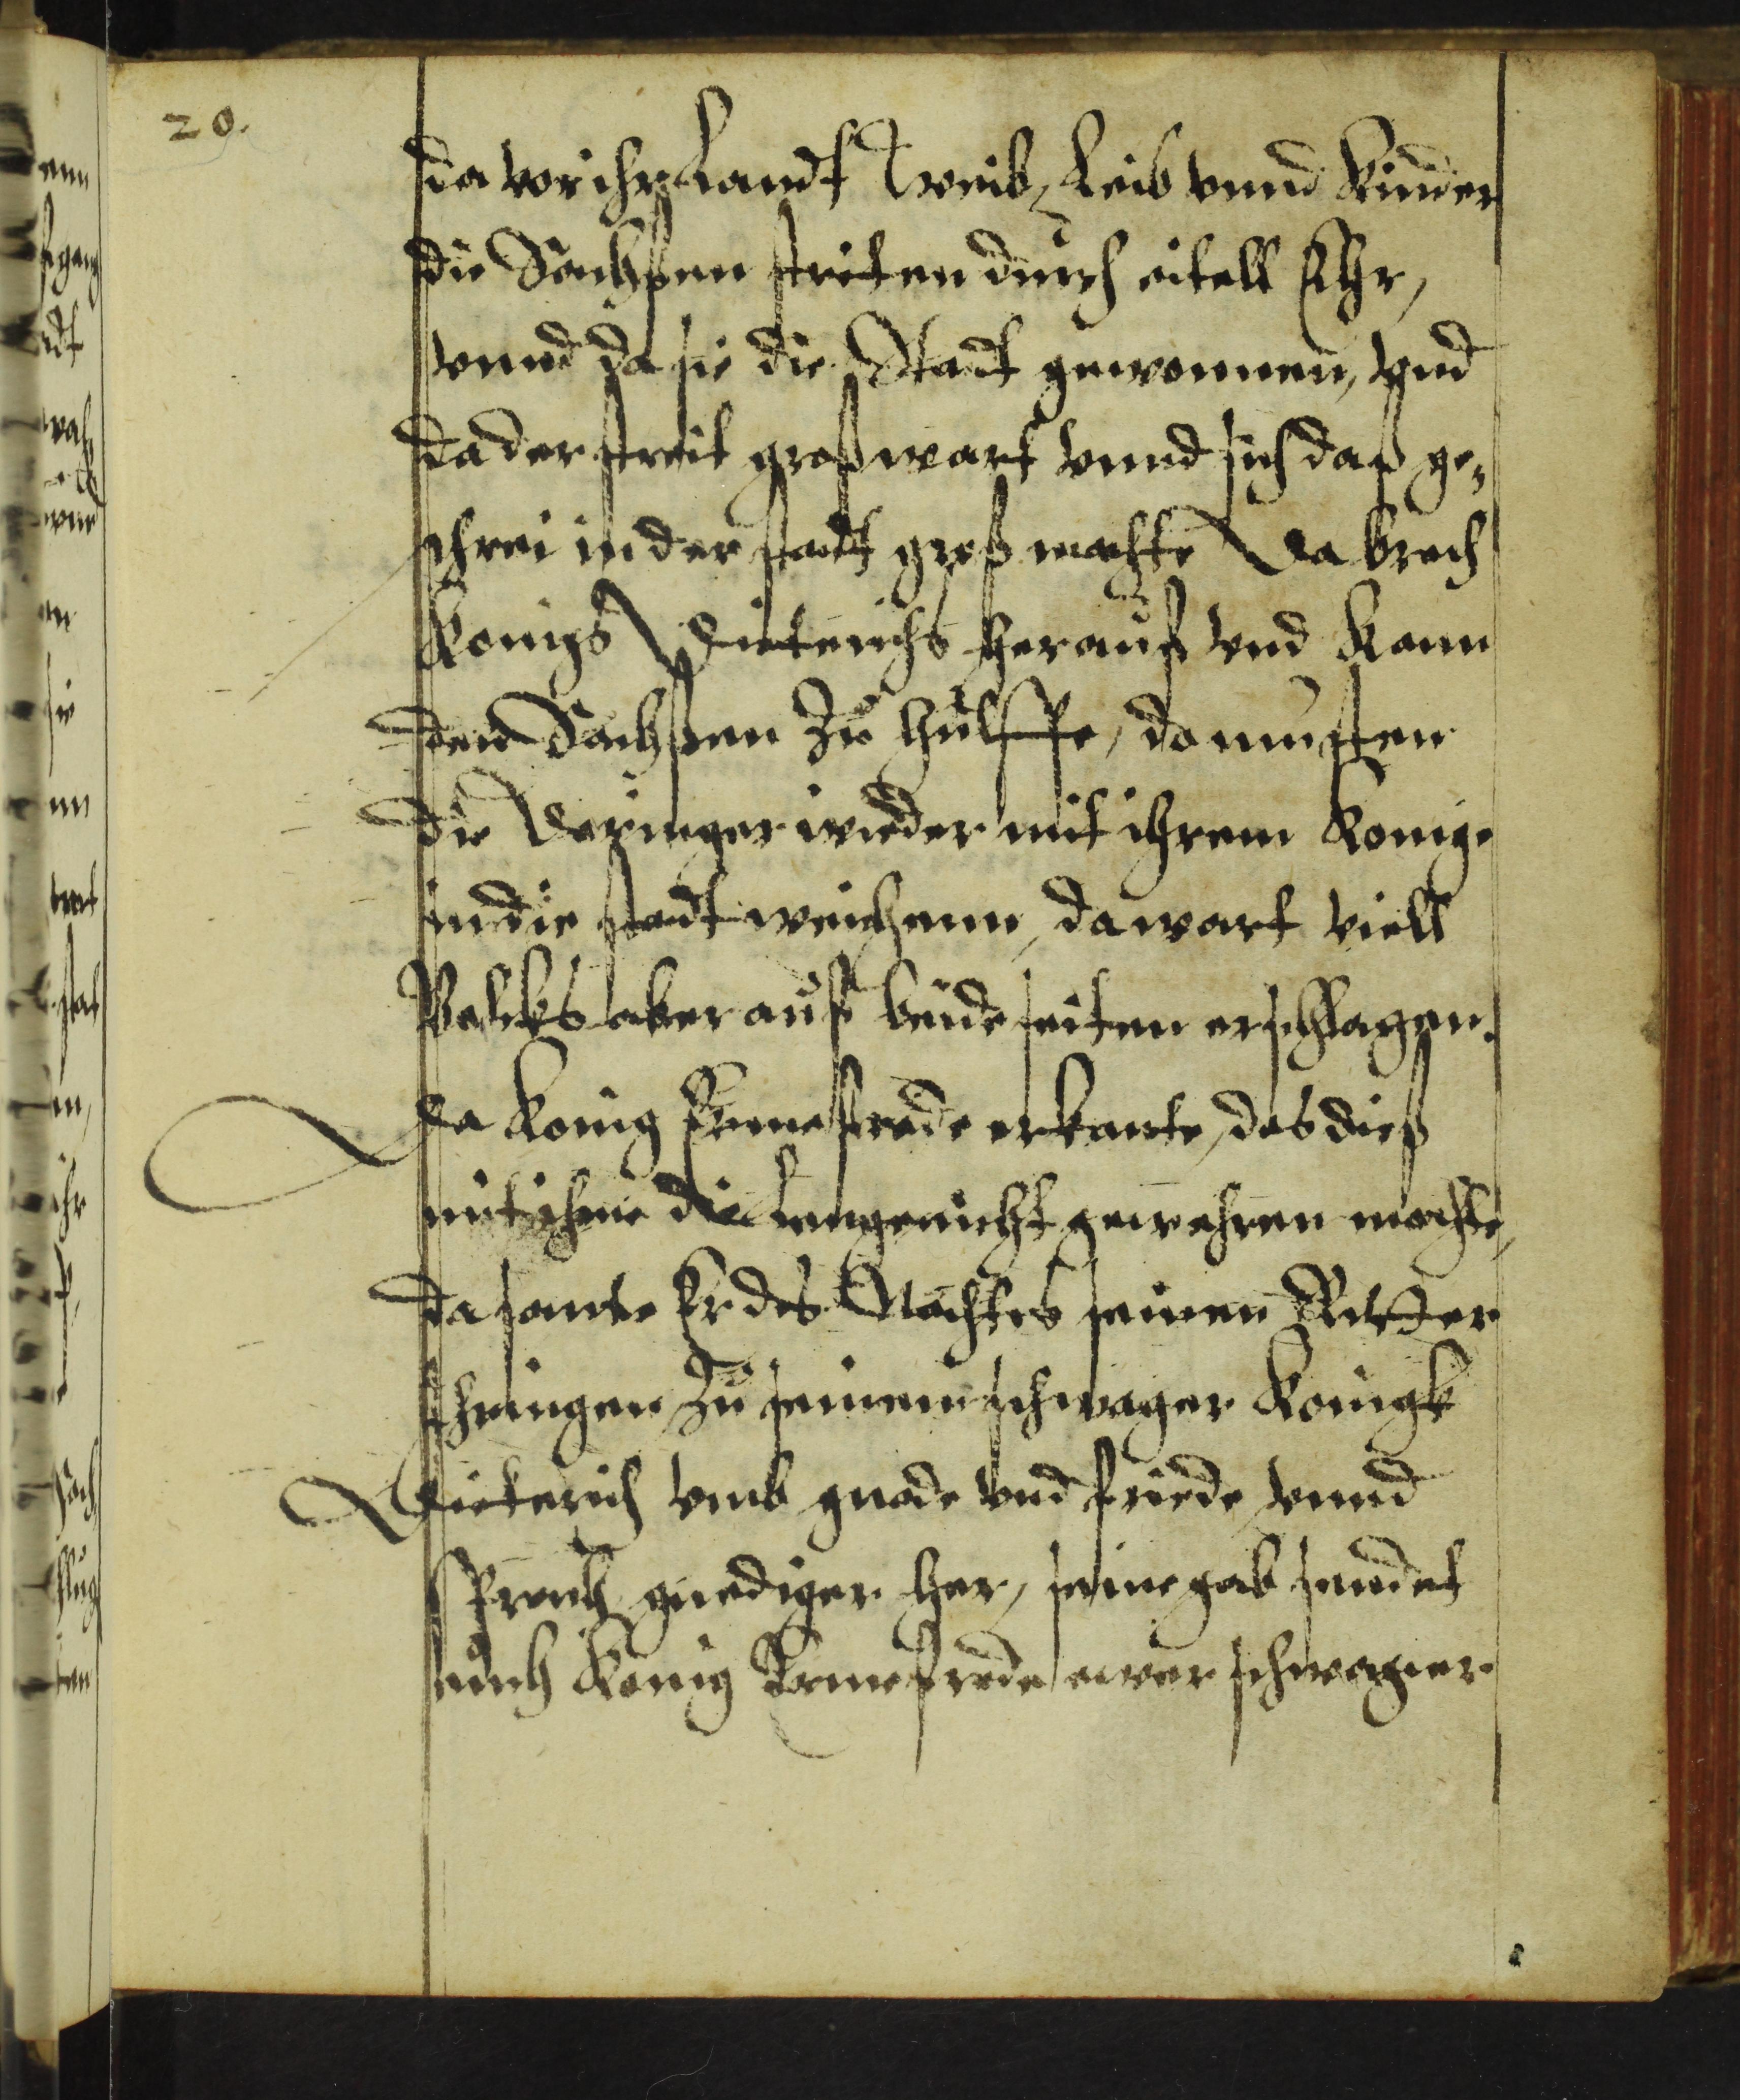 20.
da vor ihr Landt Weib, Leib vnnd Kinder
die Sachssen striten durch eitell Ehr,
vnnd da sie die Stadt gewonnen, vnd
da der streit groß wart vnnd sich daß ge,
schrei in der stadt groß machte Da brach
Konigs Dieterichs herauf vnd kam
den Sachssen zu hulffe, do musten
die Doringer wieder mit ihrem Konige
in die stadt weichenn, da wart viell
Volcks aber auf beide seiten erschlagen.
Da Konig Ermefrede erkante, das dieß
mit ihme die lenge nicht gewehren mochte,
da sante Er des Nachtes seinen Ritter
Ihringen zu seinem schwager Konigk
Dieterich vmb gnade vnd friede vnnd
sprach gnediger her, seine gab sendet
euch Konig Ermefrede ewer schwager